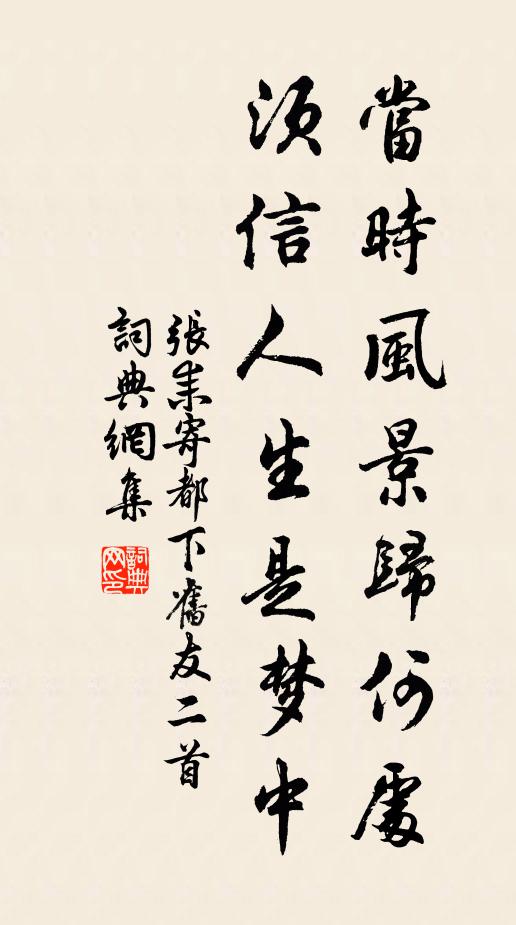 當時風景歸何處
須信人生是梦中
張耒寄都下舊友二首
詞典網集
詞典网印